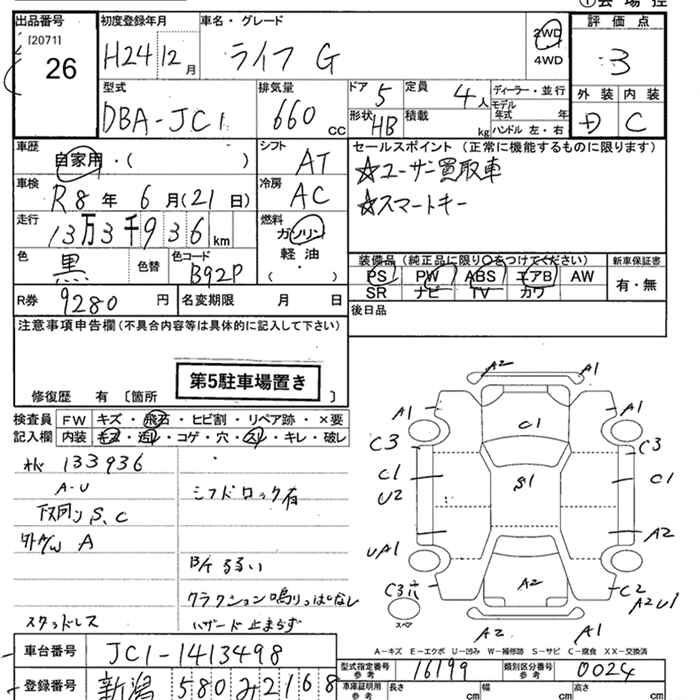 ①会場控
出品番号 初度登録年月 車名・グレード 評価点
[2071]
26
H24 12月 ライフ G 2WD 4WD 3
外装 内装
D C
型式 排気量 ドア 定員 ディーラー・並行
DBA-JC1 660cc 5 4人 モデル年式 年
形状 HB 積載 kg ハンドル 左・右
車歴 自家用・( ) シフト AT
セールスポイント(正常に機能するものに限ります)
☆ユーザー買取車
☆スマートキー
車検 R8年 6月(21日) 冷房 AC
走行 13万3千936km 燃料 ガソリン 軽油 ・ ( )
色 黒 色替 色コード B92P
装備品(純正品に限り○をつけてください) 新車保証書
PS PW ABS エアB AW 有・無
SR ナビ TV カワ
R券 9280円 名変期限 月 日
後日品
注意事項申告欄(不具合内容等は具体的に記入して下さい)
第5駐車場置き
修復歴 有 [箇所 ]
検査員記入欄 FW キズ・飛石・ヒビ割・リペア跡・×要
内装 キズ・汚レ・コゲ・穴・スレ・キレ・破レ
133936
A-U
下廻り S、C
A
シフトロック有
B/K るるい
クラクション鳴りっぱなし
ハザード止まらず
スタッドレス
A2 A1
A1 A1
C1
C3 C3
C1 S1 C1
U2
A2
UA1
C3穴 A2 C2
A2U1
スペア
A2 A1
A-キズ E-エクボ U-凹み W-補修跡 S-サビ C-腐食 XX-交換済
車台番号 JC1-1413498
型式指定番号 参考 16199 類別区分番号 参考 0024
登録番号 新潟 580 み 2168
車庫証明用 参考 長さ 幅 高さ